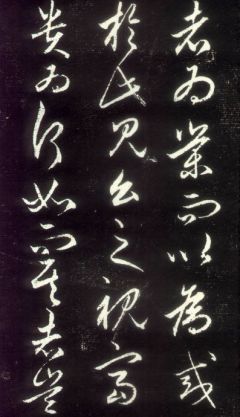 者為榮而以為戒
於此見公之視富
貴為何如而其志豈